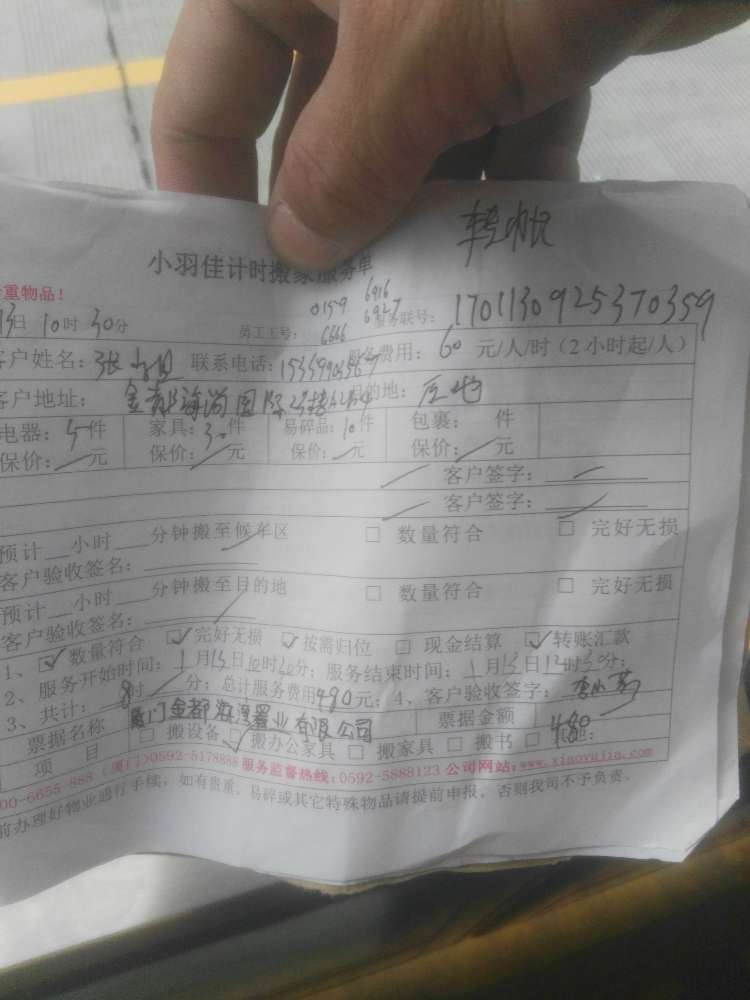 转帐
小羽佳计时搬家服务单
重物品！
13日10时30分
员工工号：0159 6916 6666 6927 服务联号：1701130925370359
客户姓名：张 联系电话： 服务费用：60元/人/时（2小时起/人）
客户地址：金都海尚国际 目的地：
电器：5件 家具：30件 易碎品：10件 包裹： 件
保价： 元 保价： 元 保价： 元 保价： 元
客户签字：
客户签字：
预计 小时 分钟搬至候车区 □ 数量符合 □ 完好无损
客户验收签名：
预计 小时 分钟搬至目的地 □ 数量符合 □ 完好无损
客户验收签名：
1、☑数量符合 ☑完好无损 ☑按需归位 □现金结算 ☑转账汇款
2、服务开始时间：1月13日10时30分；服务结束时间：1月13日12时30分；
3、共计：8时 分；总计服务费用480元；4、客户验收签字：
票据名称 厦门金都海湾置业有限公司 票据金额 480
项 目 □搬设备 ☑搬办公家具 □搬家具 □搬书 □其他：
00-6655 888（厦门）0592-5178888 服务监督热线：0592-5888123 公司网站：www.xiaoyujia.com
前办理好物业通行手续，如有贵重、易碎或其它特殊物品请提前申报，否则我司不予负责．